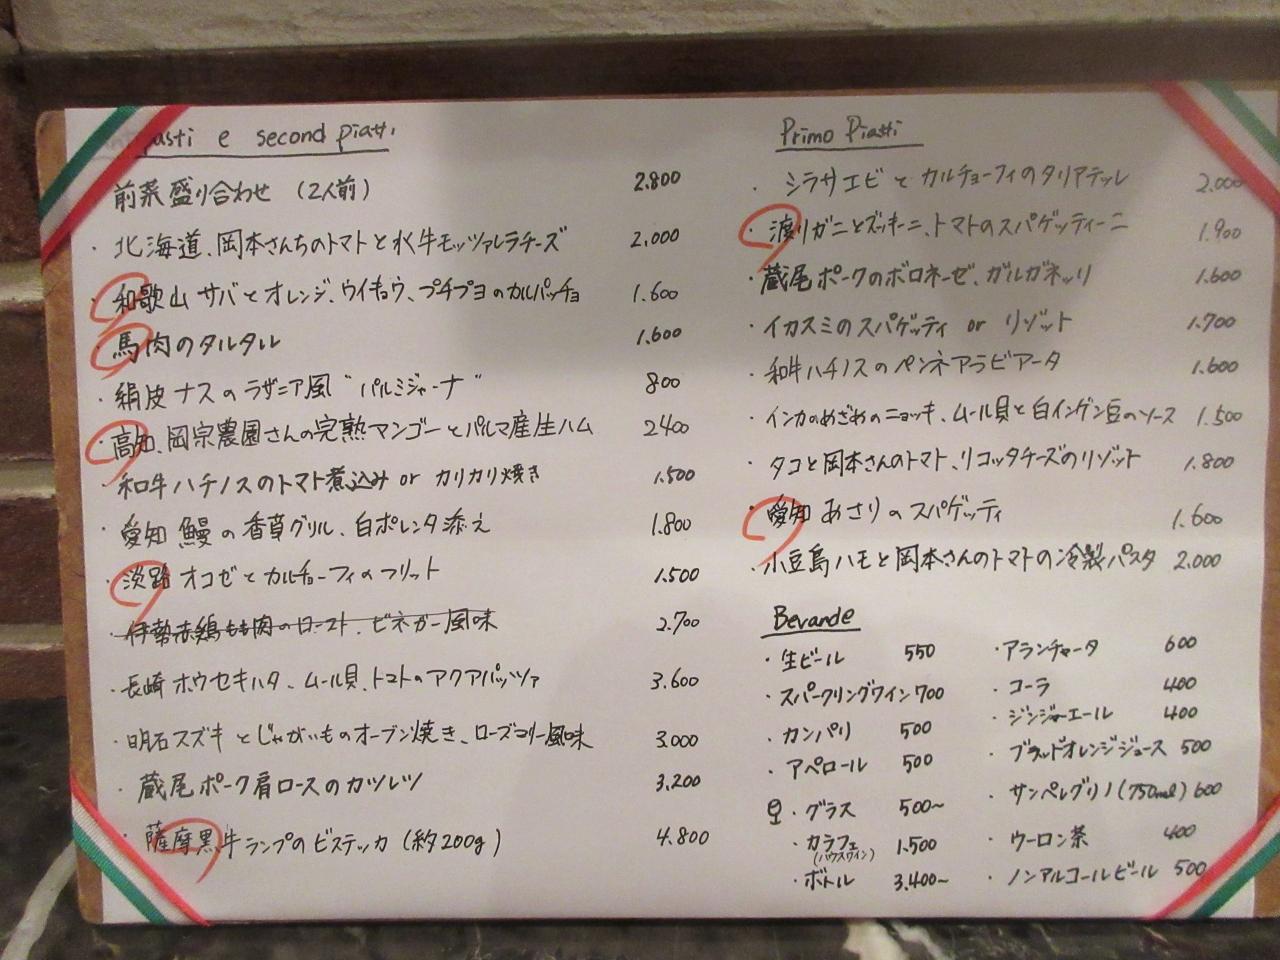 antipasti e second piatti
前菜盛り合わせ (2人前) 2.800
・北海道、岡本さんちのトマトと水牛モッツァレラチーズ 2.000
・和歌山 サバとオレンジ、ウイキョウ、プチプヨのカルパッチョ 1.600
・馬肉のタルタル 1.600
・絹皮ナスのラザニア風 "パルミジャーナ" 800
・高知、岡宗農園さんの完熟マンゴーとパルマ産生ハム 2400
・和牛ハチノスのトマト煮込み or カリカリ焼き 1.500
・愛知 鰻の香草グリル、白ポレンタ添え 1.800
・淡路 オコゼとカルチョーフィのフリット 1.500
・伊勢赤鶏もも肉のロースト、ビネガー風味 2.700
・長崎 ホウセキハタ、ムール貝、トマトのアクアパッツァ 3.600
・明石スズキとじゃがいものオーブン焼き、ローズマリー風味 3.000
・蔵尾ポーク肩ロースのカツレツ 3.200
・薩摩黒牛ランプのビステッカ (約200g) 4.800
Primo Piatti
・シラサエビとカルチョーフィのタリアテッレ 2.000
・渡りガニとズッキーニ、トマトのスパゲッティーニ 1.900
・蔵尾ポークのボロネーゼ、ガルガネッリ 1.600
・イカスミのスパゲッティ or リゾット 1.700
・和牛ハチノスのペンネアラビアータ 1.600
・インカのめざめのニョッキ、ムール貝と白インゲン豆のソース 1.500
・タコと岡本さんのトマト、リコッタチーズのリゾット 1.800
・愛知 あさりのスパゲッティ 1.600
・小豆島ハモと岡本さんのトマトの冷製パスタ 2.000
Bevande
・生ビール 550
・スパークリングワイン 700
・カンパリ 500
・アペロール 500
・グラス 500~
・カラフェ 1.500
(ハウスワイン)
・ボトル 3.400~
・アランチャータ 600
・コーラ 400
・ジンジャーエール 400
・ブラッドオレンジジュース 500
・サンペレグリノ(750ml) 600
・ウーロン茶 400
・ノンアルコールビール 500